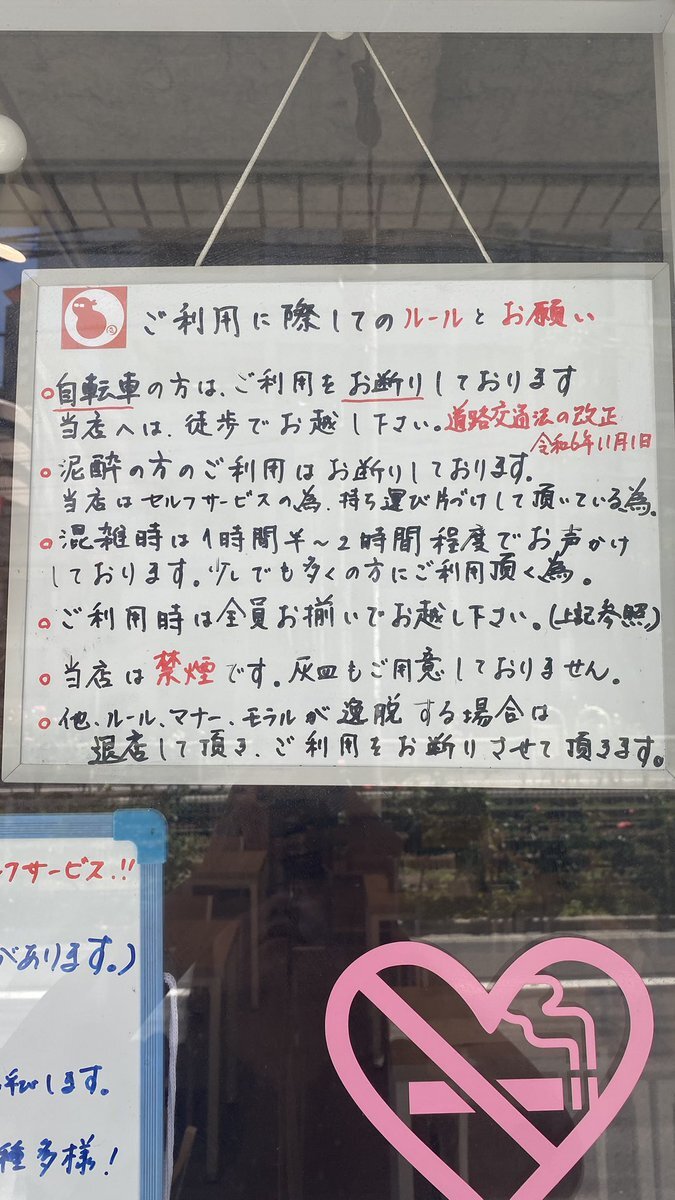 ご利用に際してのルールとお願い
自転車の方は、ご利用をお断りしております
当店へは、徒歩でお越し下さい。道路交通法の改正
令和6年11月1日
泥酔の方のご利用はお断りしております。
当店はセルフサービスの為、持ち運び片づけして頂いている為。
混雑時は1時間半〜2時間程度でお声かけ
しております。少しでも多くの方にご利用頂く為。
ご利用時は全員お揃いでお越し下さい。(上記参照)
当店は禁煙です。灰皿もご用意しておりません。
他、ルール、マナー、モラルが逸脱する場合は
退店して頂き、ご利用をお断りさせて頂きます。
ルフサービス!!
があります。)
します。
種多様!